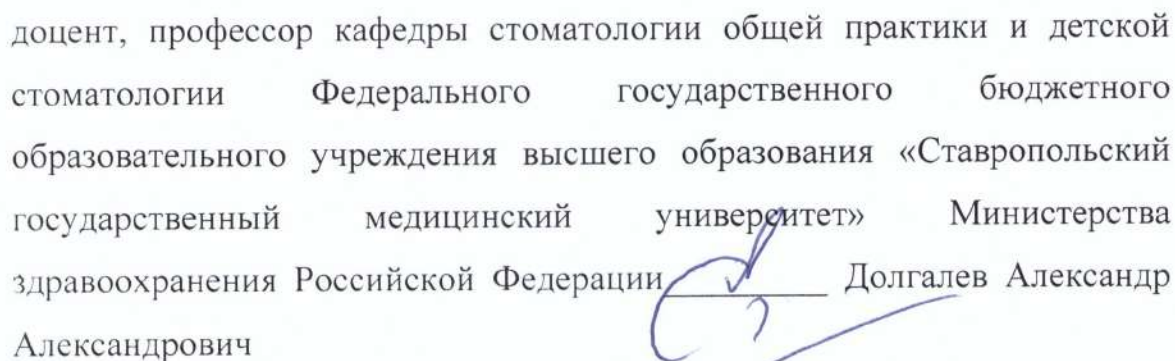 доцент, профессор кафедры стоматологии общей практики и детской
стоматологии Федерального государственного бюджетного
образовательного учреждения высшего образования «Ставропольский
государственный медицинский университет» Министерства
здравоохранения Российской Федерации__________ Долгалев Александр
Александрович